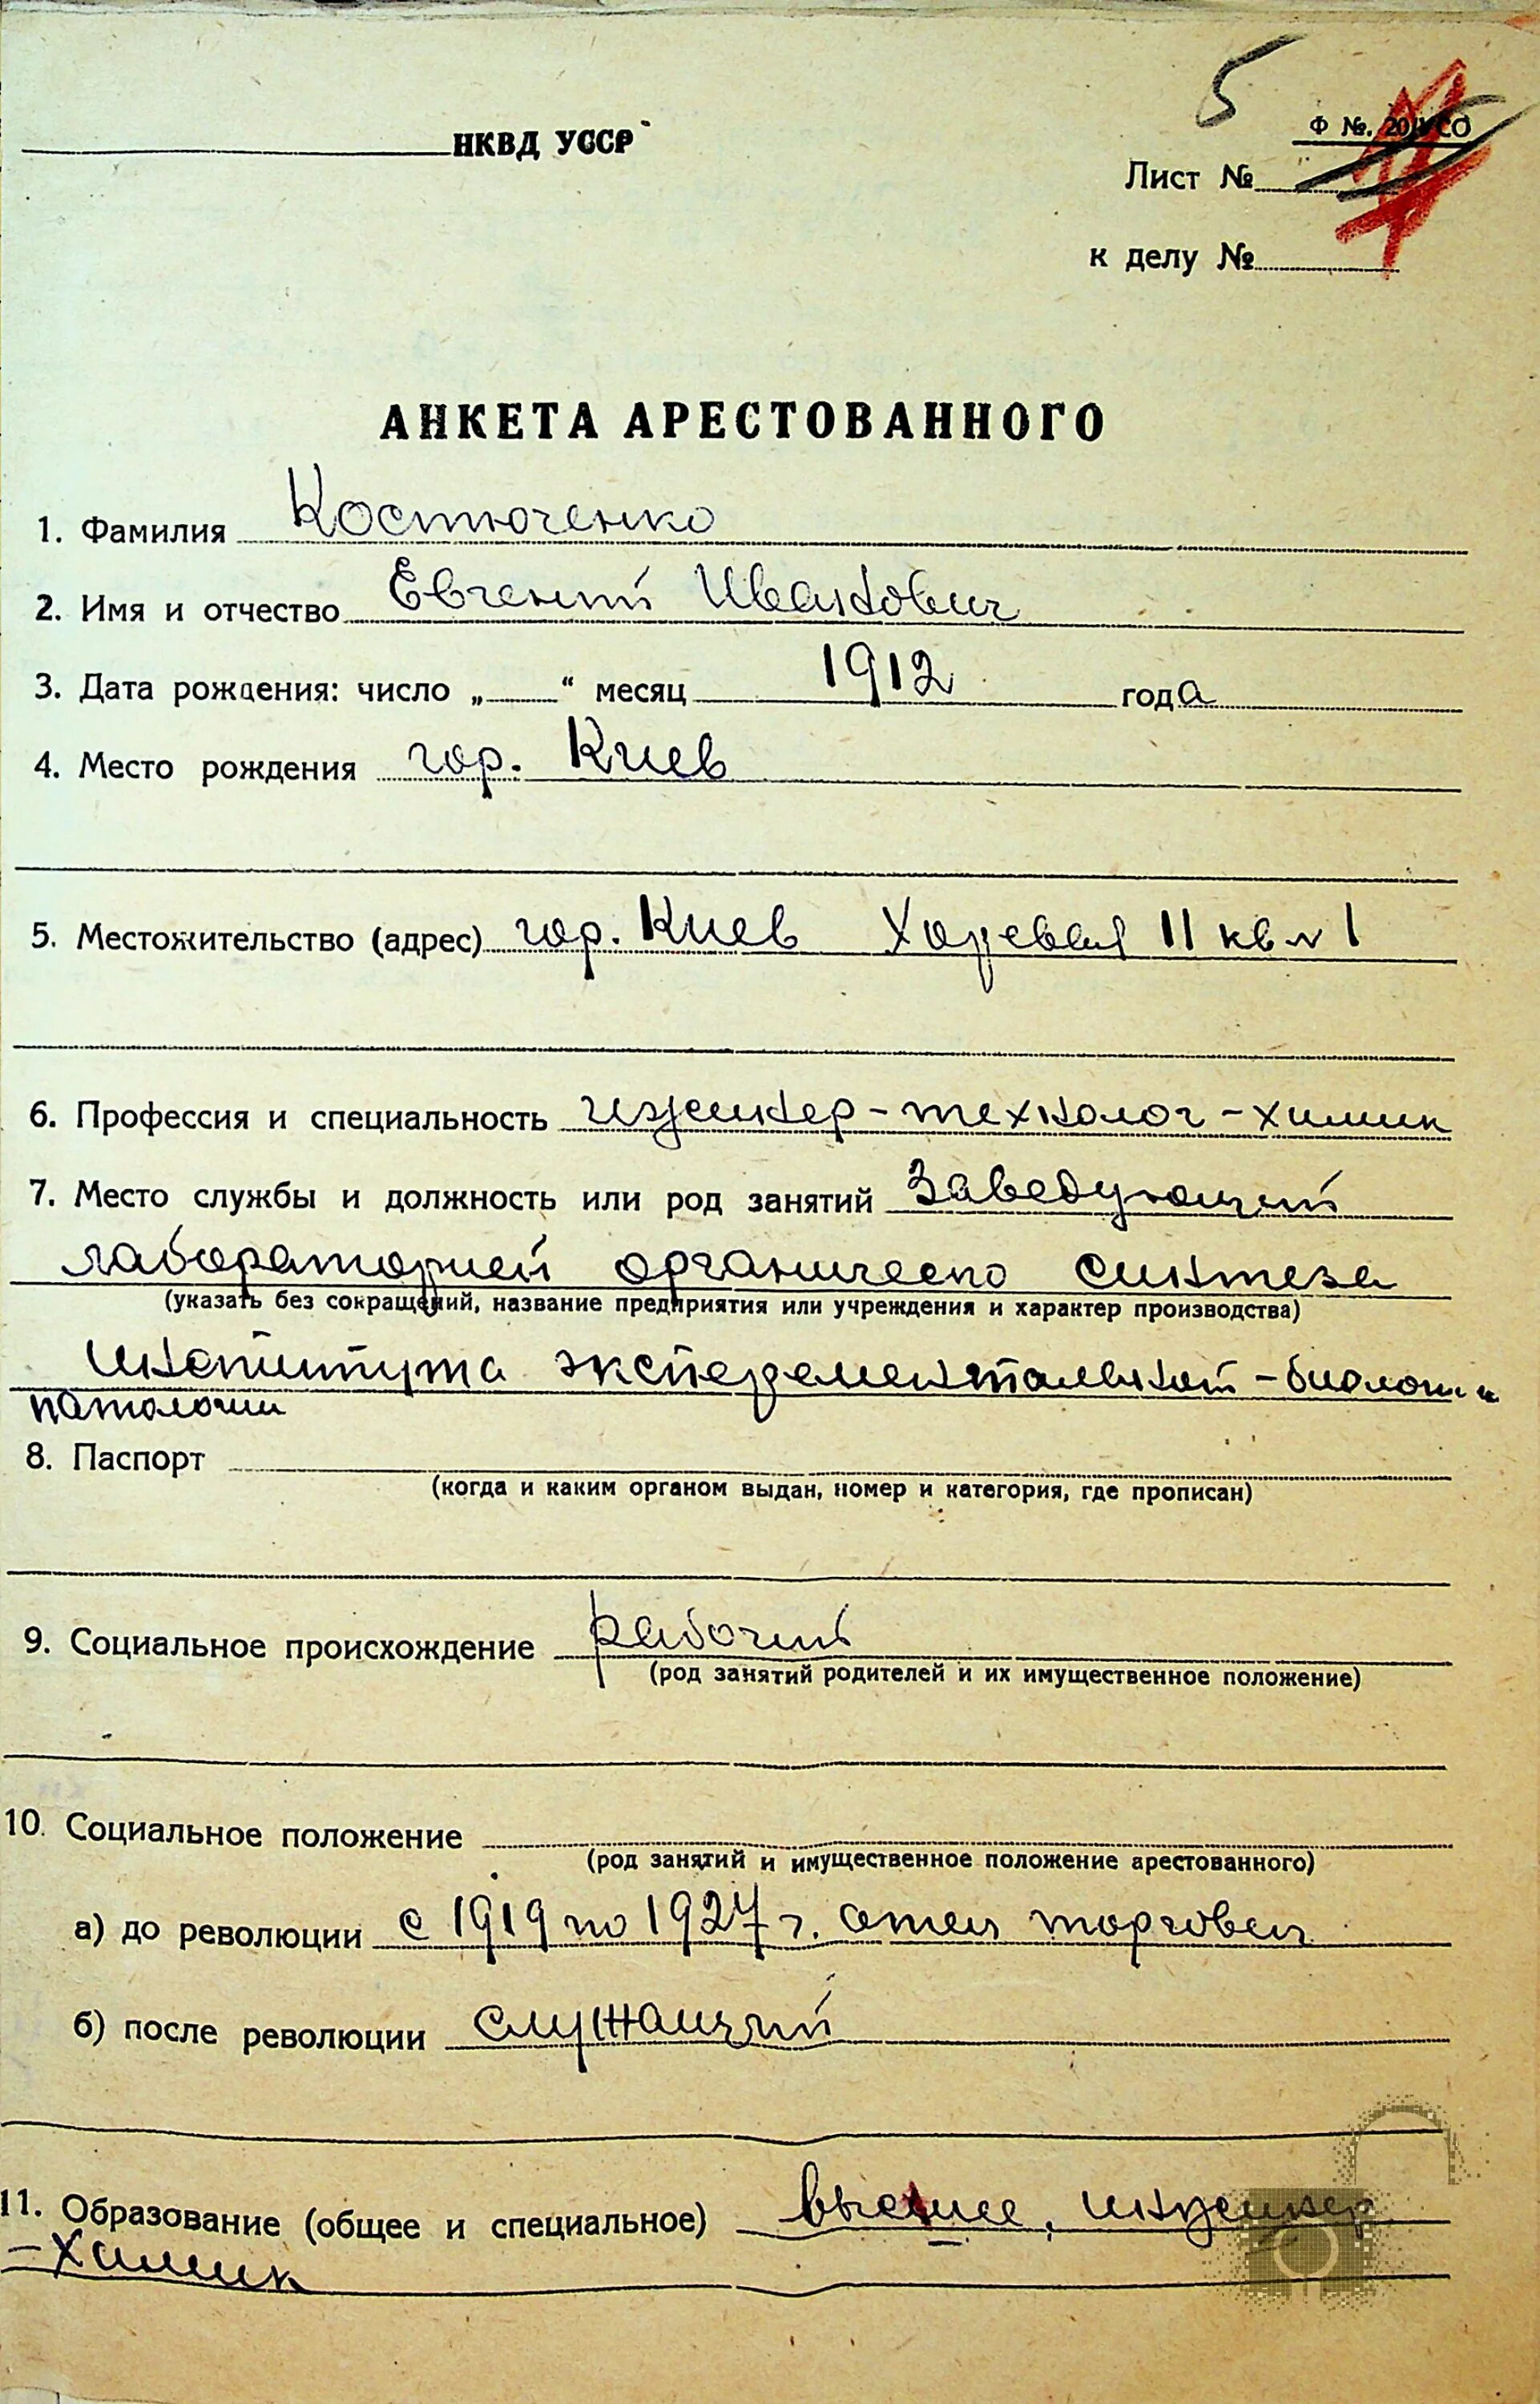 5
Ф №. 20/УСО
НКВД УССР
Лист №
к делу №
АНКЕТА АРЕСТОВАННОГО
1. Фамилия Костюченко
2. Имя и отчество Евгений Иванович
3. Дата рождения: число „ “ месяц 1912 года
4. Место рождения гор. Киев
5. Местожительство (адрес) гор. Киев Хоревая 11 кв № 1
6. Профессия и специальность инженер-технолог-химик
7. Место службы и должность или род занятий Заведующий
лабораторией органическо синтеза
(указать без сокращений, название предприятия или учреждения и характер производства)
Института эксперементальной-биологии и
патологии
8. Паспорт
(когда и каким органом выдан, номер и категория, где прописан)
9. Социальное происхождение рабочий
(род занятий родителей и их имущественное положение)
10. Социальное положение
(род занятий и имущественное положение арестованного)
а) до революции с 1919 по 1927 г. отец торговец
б) после революции служащий
11. Образование (общее и специальное) высшее, инженер
-химик